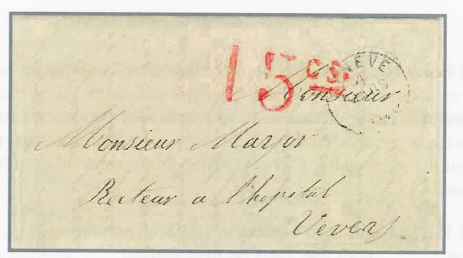 15 cs.
NÈVE
Monsieur
Monsieur Maryor
Recteur a l'hopital
Vevey